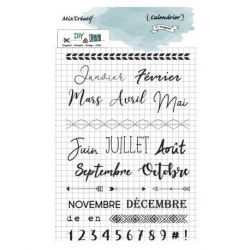 Mix'Créatif [Calendrier]
DIY &
Janvier Février
Mars Avril Mai
Juin JUILLET Août
Septembre Octobre
NOVEMBRE DÉCEMBRE
de en
1 2 3 4 5 6 7 8 9 # !